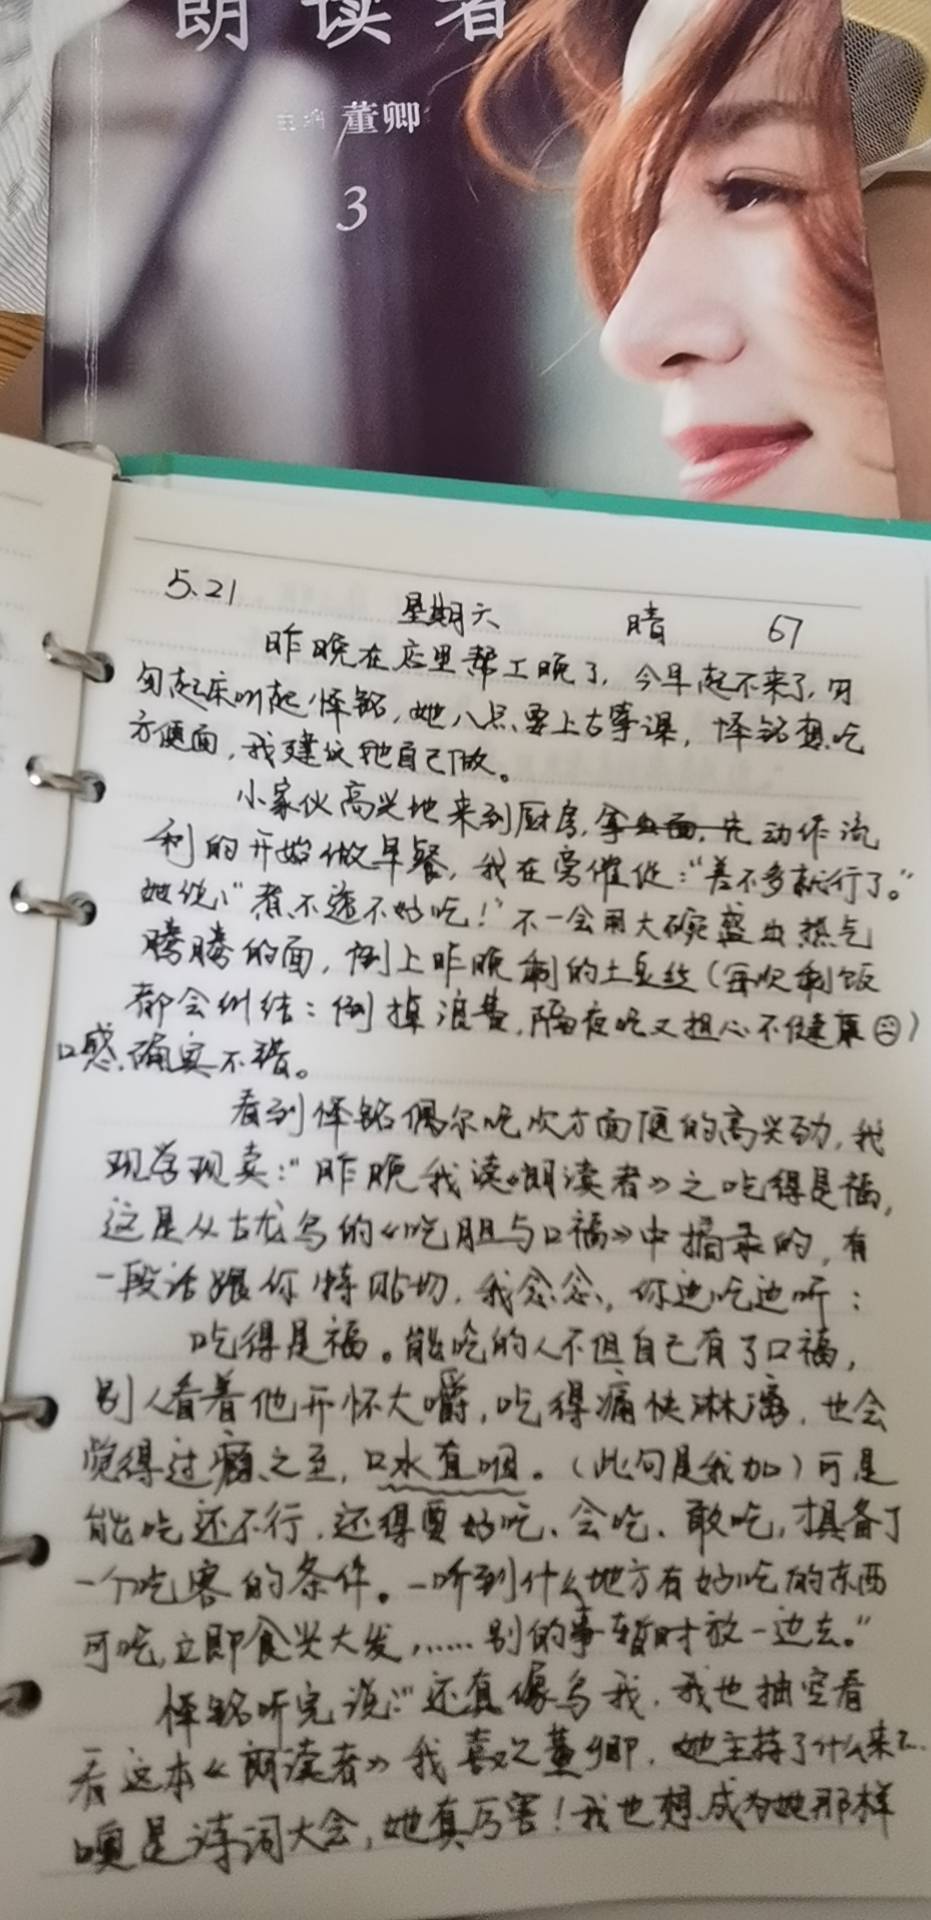 朗读者
董卿
3
5.21 星期六 晴 67
昨晚在店里帮工晚了，今早起不来了，
起床叫起怿铭，她八点要上古筝课，怿铭想吃
方便面，我建议她自己做。
小家伙高兴地来到厨房，拿出面，先动作流
利的开始做早餐，我在旁催促：“差不多就行了。”
她说“煮不透不好吃！”不一会用大碗盛出热气
腾腾的面，倒上昨晚剩的土豆丝（每次剩饭
都会纠结：倒掉浪费，隔夜吃又担心不健康☹）
口感确实不错。
看到怿铭偶尔吃次方面便的高兴劲，我
现学现卖：“昨晚我读《朗读者》之吃得是福，
这是从古龙写的《吃胆与口福》中摘录的，有
一段话跟你特贴切，我念念，你边吃边听：
吃得是福。能吃的人不但自己有了口福，
别人看着他开怀大嚼，吃得痛快淋漓，也会
觉得过瘾之至，口水直咽。（此句是我加）可是
能吃还不行，还得要好吃、会吃、敢吃，才具备了
一个吃客的条件。一听到什么地方有好吃的东西
可吃，立即食兴大发，……别的事暂时放一边去。”
怿铭听完说：“还真像写我，我也抽空看
看这本《朗读者》我喜欢董卿，她主持了什么来了
噢是诗词大会，她真厉害！我也想成为她那样